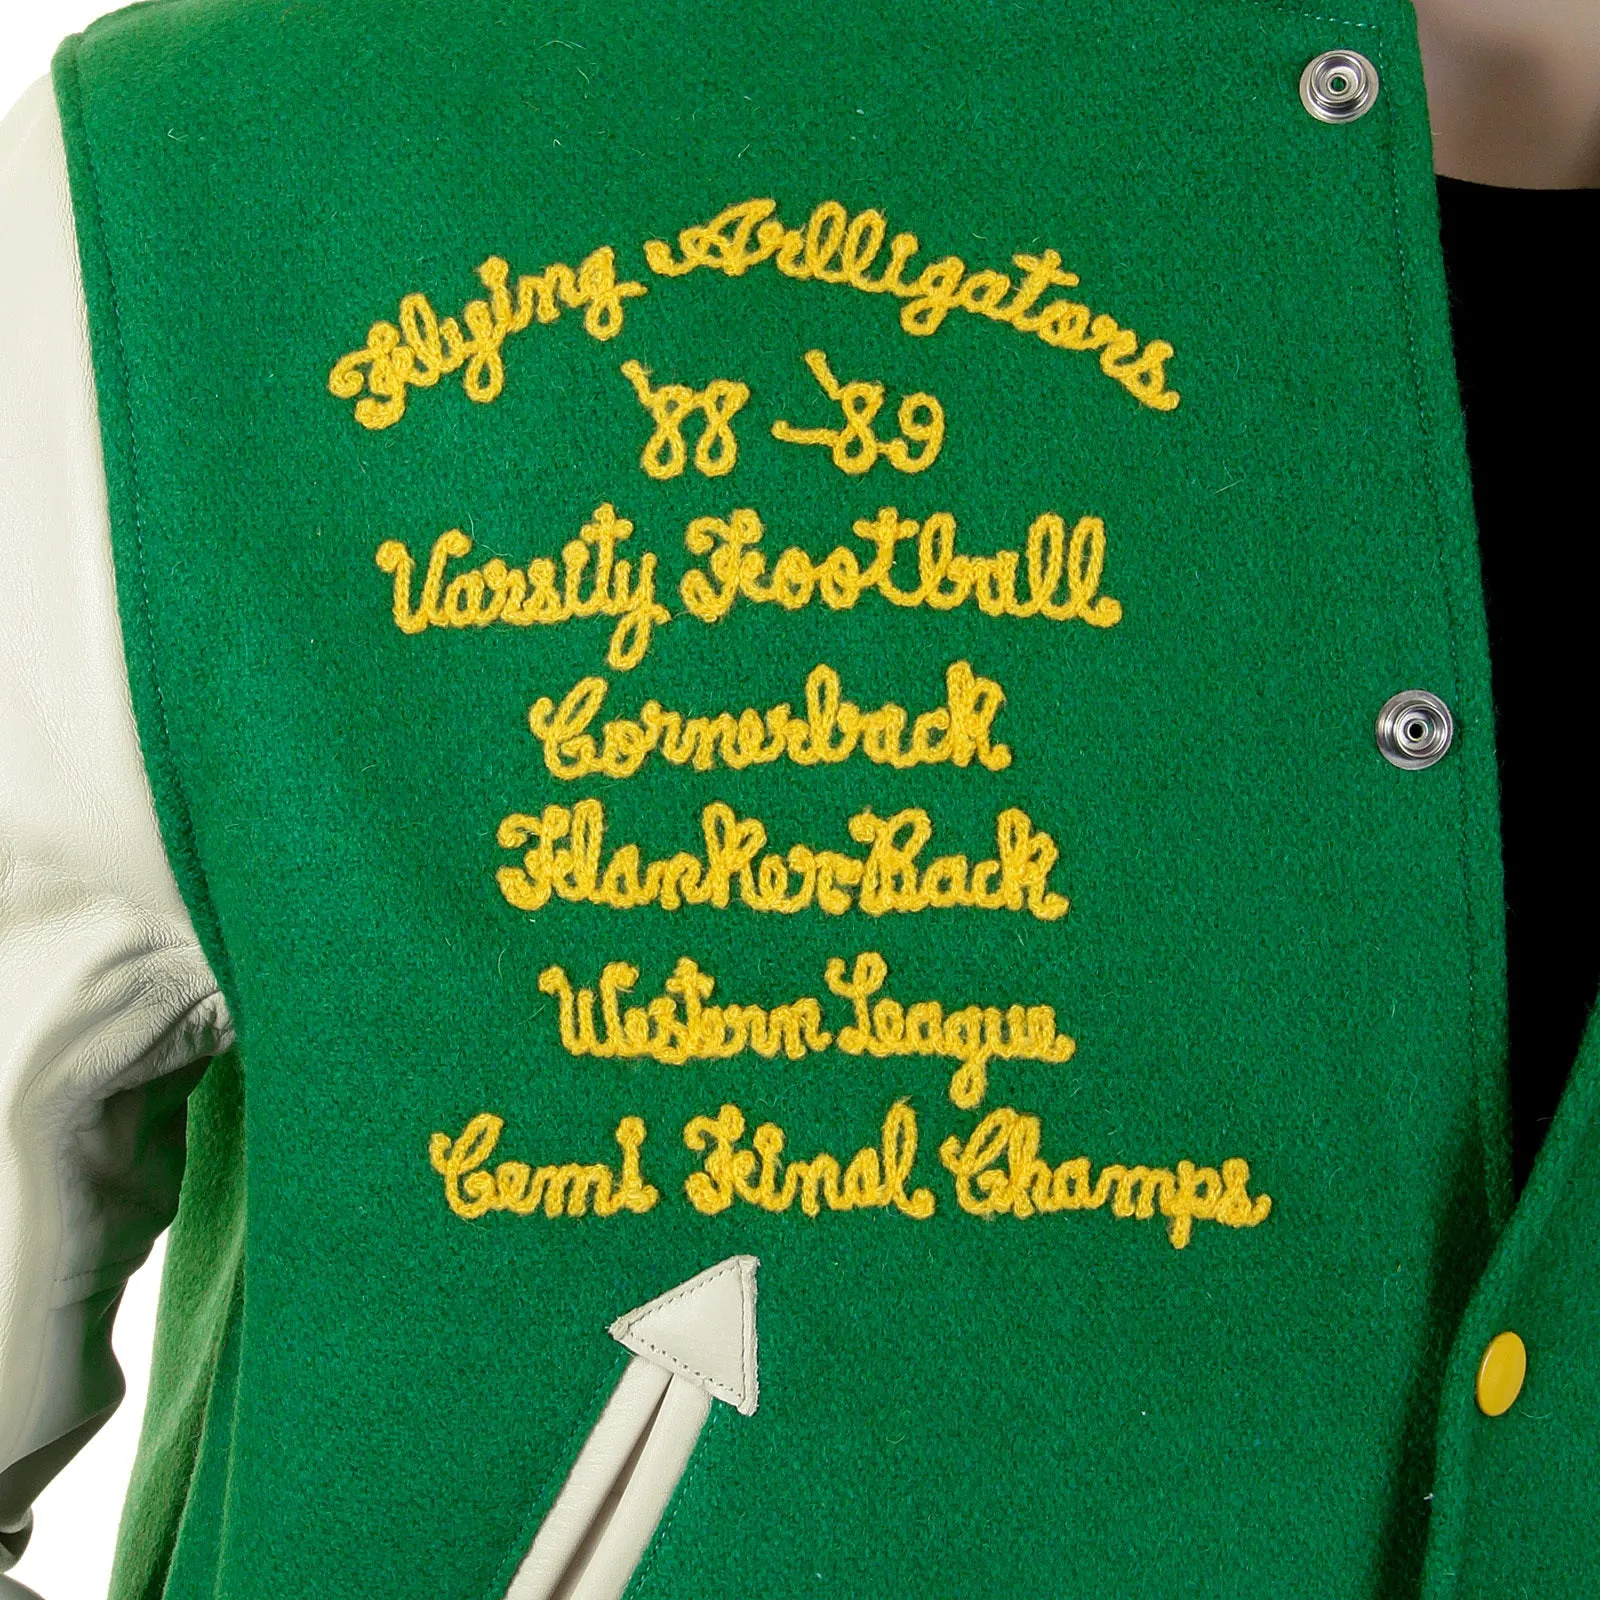 Flying Arlligators
'88-'89
Varsity Football
Cornerback
Flanker-Back
Western League
Cemi Final Champs